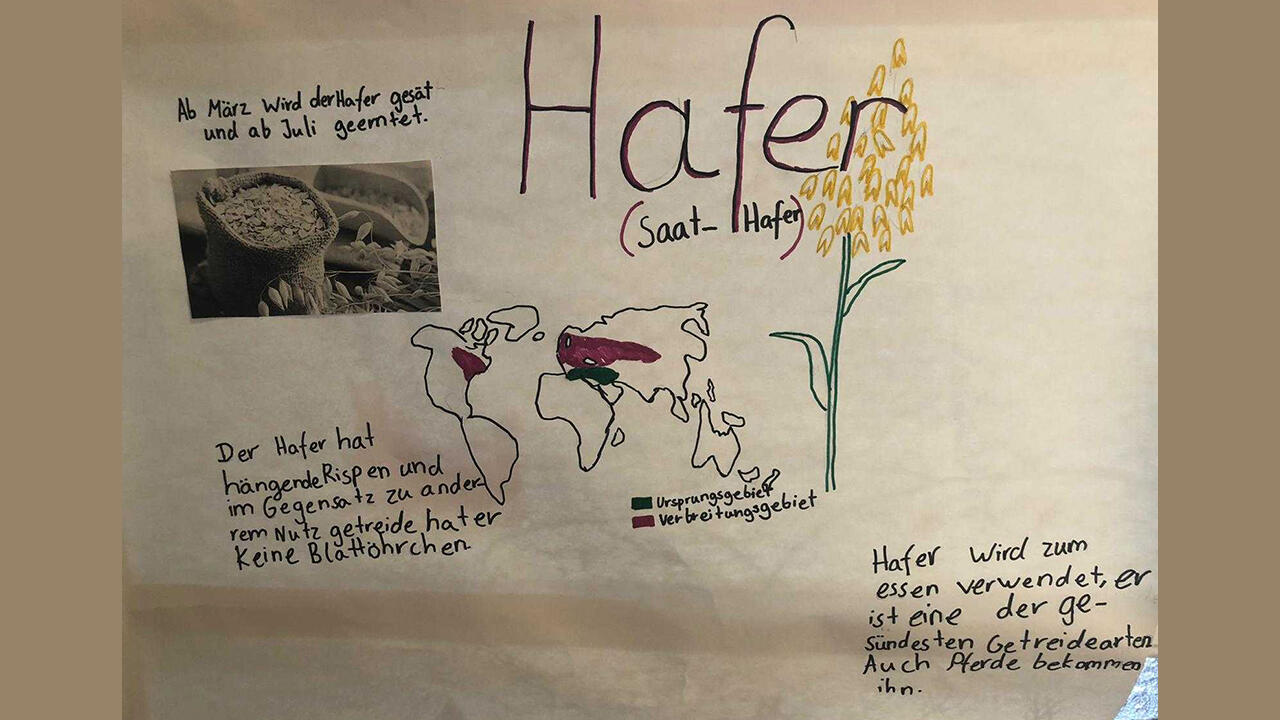 Hafer
(Saat-Hafer)
Ab März wird der Hafer gesät
und ab Juli geerntet.
Ursprungsgebiet
Verbreitungsgebiet
Der Hafer hat
hängende Rispen und
im Gegensatz zu ander
rem Nutz getreide hat er
keine Blattöhrchen.
Hafer wird zum
essen verwendet, er
ist eine der ge-
sündesten Getreidearten
Auch Pferde bekommen
ihn.